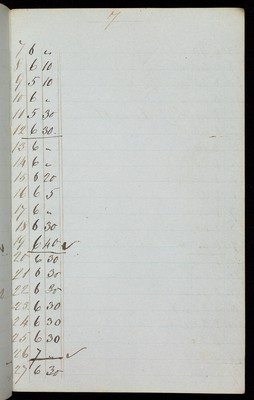 7
7 6 "
8 6 10
9 5 10
10 6 "
11 5 30
12 6 30
13 6 "
14 6 "
15 6 20
16 6 5
17 6 "
18 6 30
19 6 40 ✓
20 6 30
21 6 30
22 6 30
23 6 30
24 6 30
25 6 30
26 7 " ✓
27 6 30